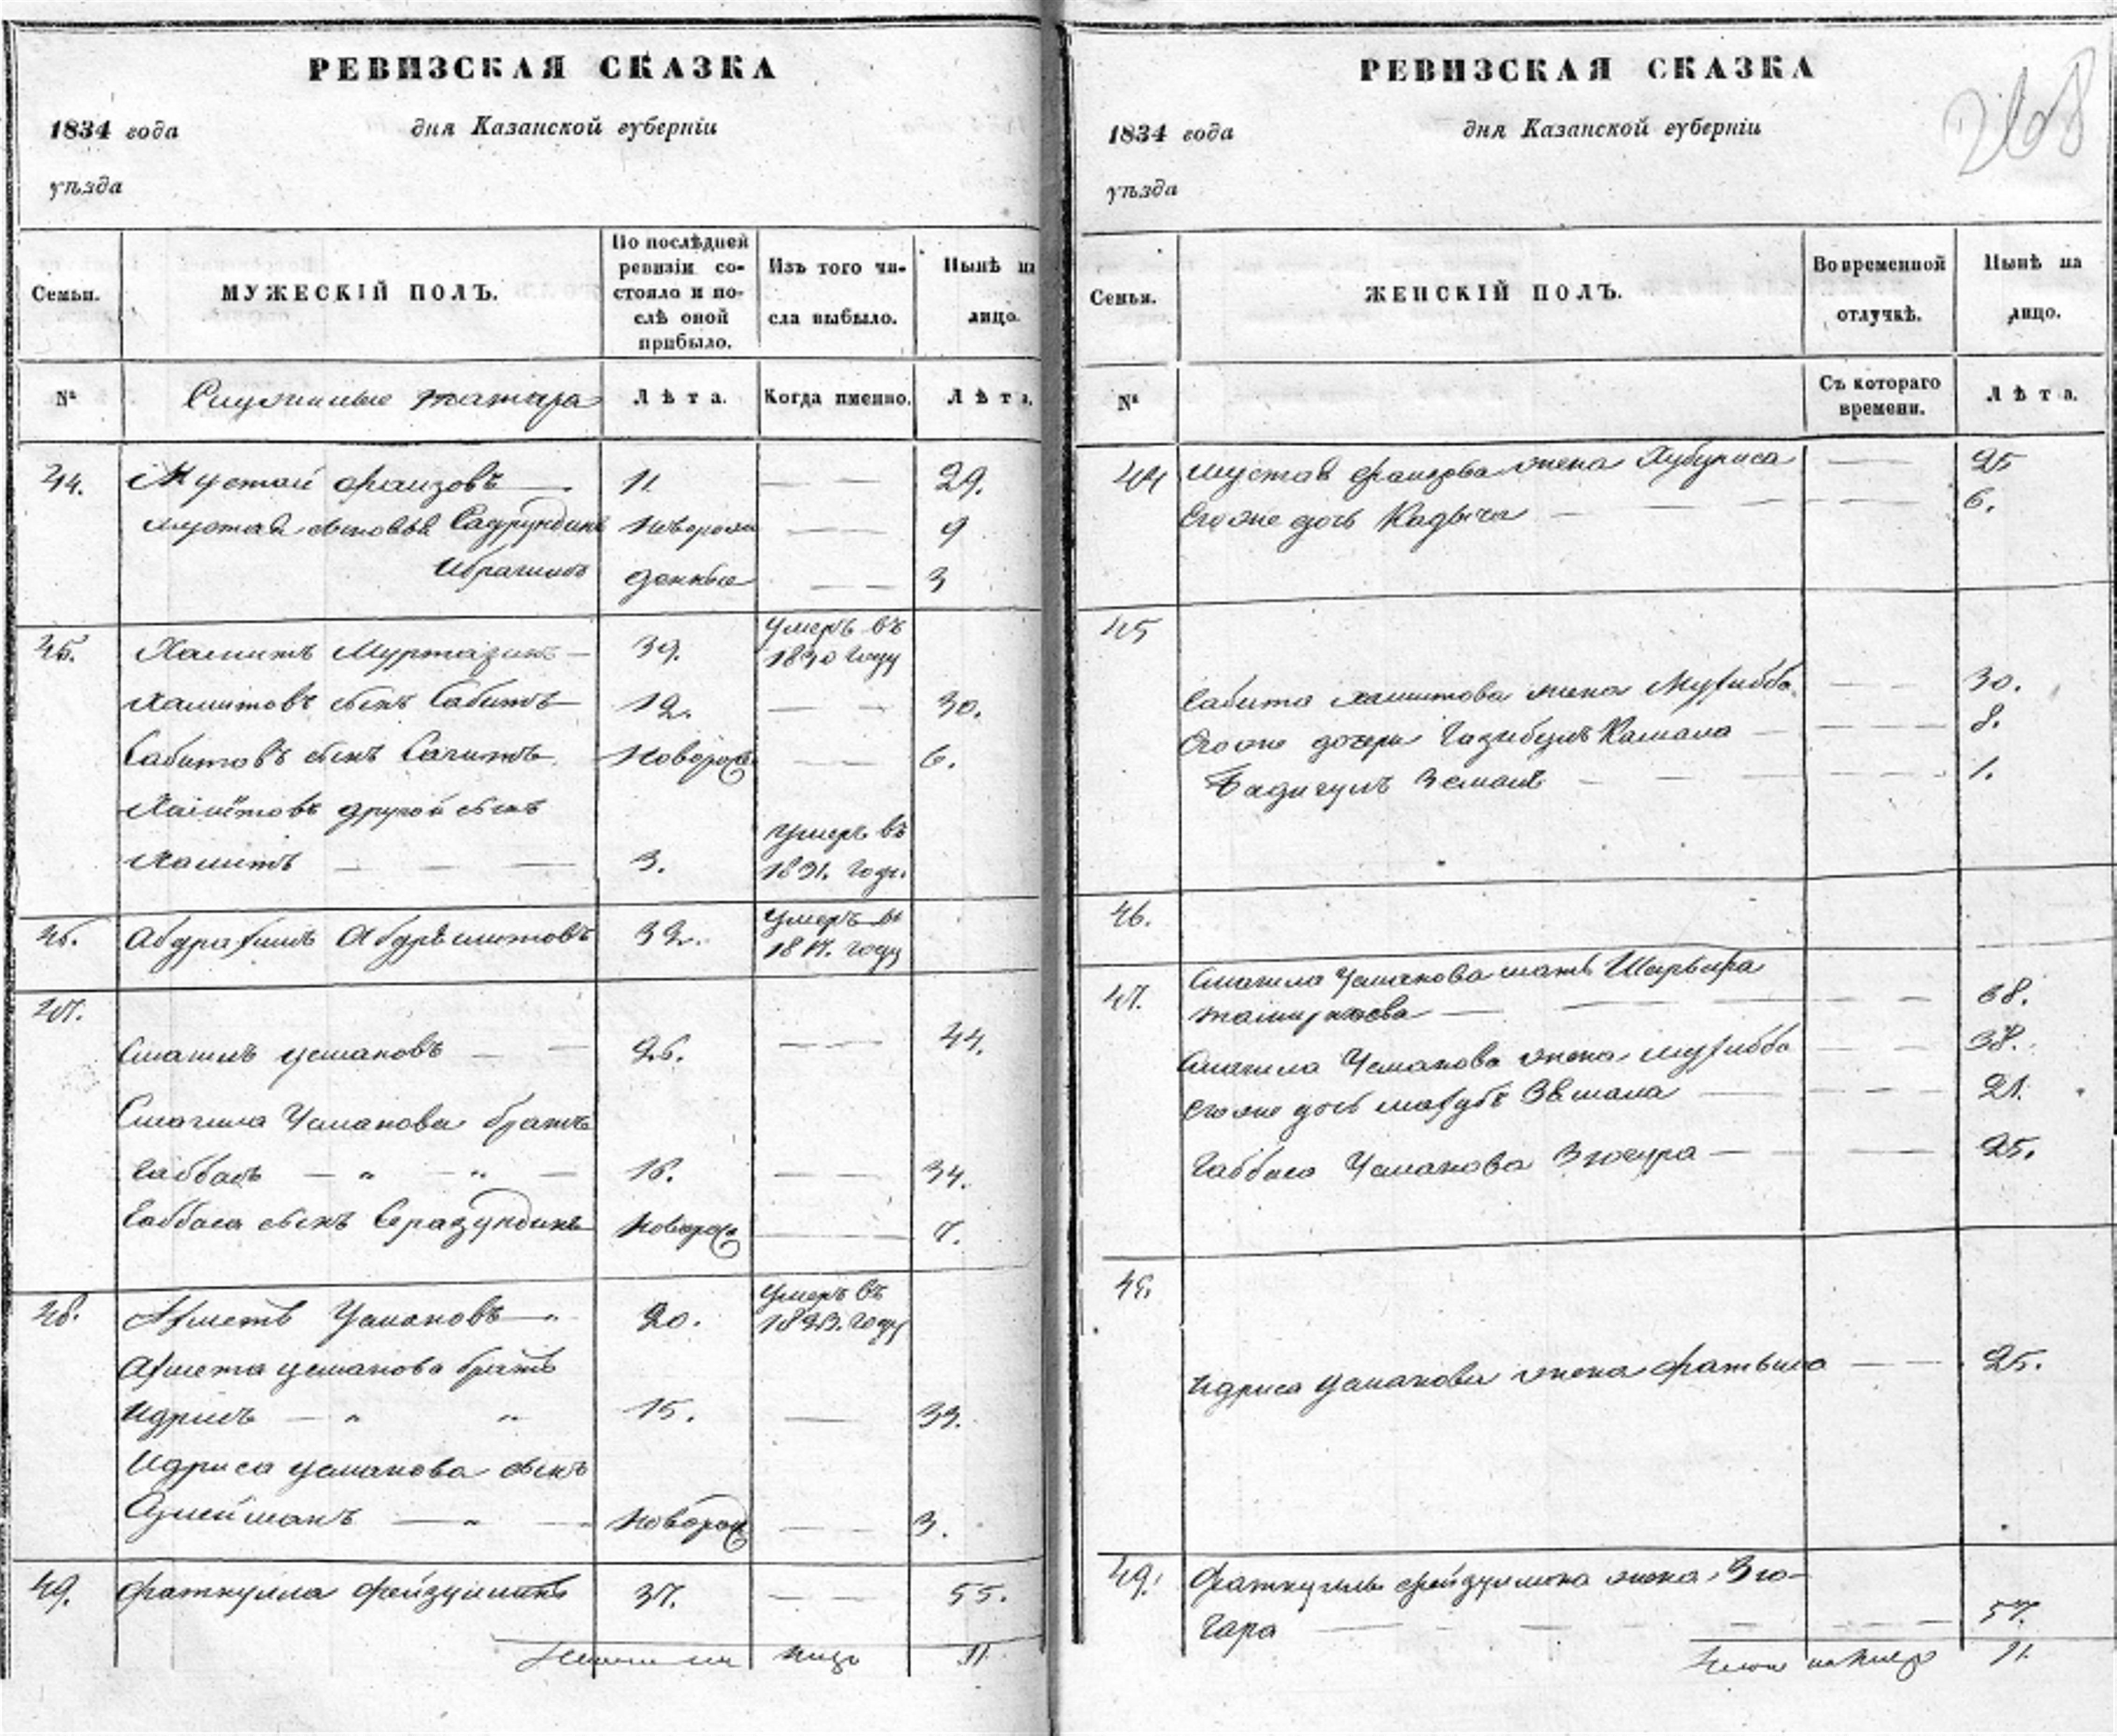 РЕВИЗСКАЯ СКАЗКА
1834 года дня Казанской губерніи
уѣзда
Семьи. МУЖЕСКІЙ ПОЛЪ. По послѣдней ревизіи состояло и послѣ оной прибыло. Изъ того числа выбыло. Нынѣ на лицо.
№ Служилые татара Лѣта. Когда именно. Лѣта.
44. Мустай Фаизовъ — 11 — — 29.
Мустая сыновья Садрундинъ новорож — — 9
Ибрагимъ денные — — 3
45. Хамитъ Муртазинъ — 39. умеръ въ 1830 году
Хамитовъ сынъ Сабитъ 12. — — 30.
Сабитовъ сынъ Сагитъ новорож — — 6.
Хамитовъ другой сынъ
Хамитъ — — — 3. умеръ въ 1831. году.
46. Абдрахимъ 32. умеръ въ 1817. году
47.
Смагилъ Усмановъ — — 26. — — 44.
Смагила Усманова братъ
Габбасъ — " — " — 16. — — 34.
Габбаса сынъ Серазундинъ новорож — 7.
48. Ахметъ Усмановъ — " 20. умеръ въ 1823. году
Ахмета Усманова братъ
Идрисъ — " " 15. — 33.
Идриса Усманова сынъ
Сулейманъ — " — новорож — — 3.
49. Фаткулла Фейзуллинъ 37. — — 55.
Итого на лицо 11
РЕВИЗСКАЯ СКАЗКА
268
1834 года дня Казанской губерніи
уѣзда
Семьи. ЖЕНСКІЙ ПОЛЪ. Во временной отлучкѣ. Нынѣ на лицо.
№ Съ котораго времени. Лѣта.
44 Мустая Фаизова жена Хубуниса — — 25
Его же дочь Кадыча — — — 6.
45
Сабита Хамитова жена Мухибба — — 30.
Его же дочери Камала — — — 8.
Бадигулъ Земалъ — — — 1.
46.
47. Смагила Усманова мать Шарыфа
— — — 68.
Смагила Усманова жена Мухибба — — 38.
Его же дочь — — — 21.
Габбаса Усманова Зюгура — — — 25.
48.
Идриса Усманова жена Фатыма — — 25.
49. Фаткуллы Фейзуллина жена Зю-
гара — — — — 57.
Итого на лицо 11.